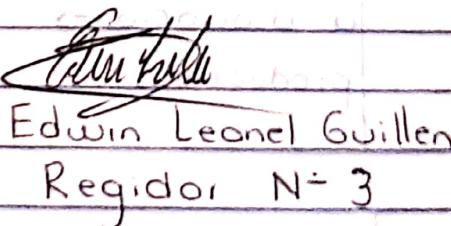 Edwin Leonel Guillen
Regidor Nº 3